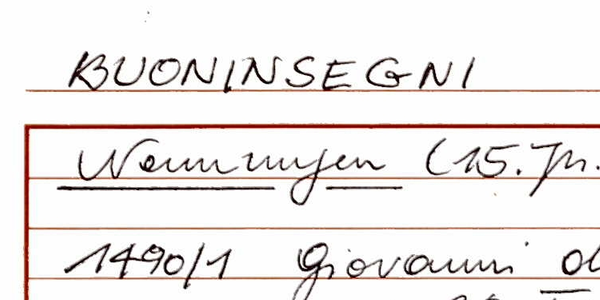 BUONINSEGNI
Nennungen (15. Jh.
1490/1 Giovanni d